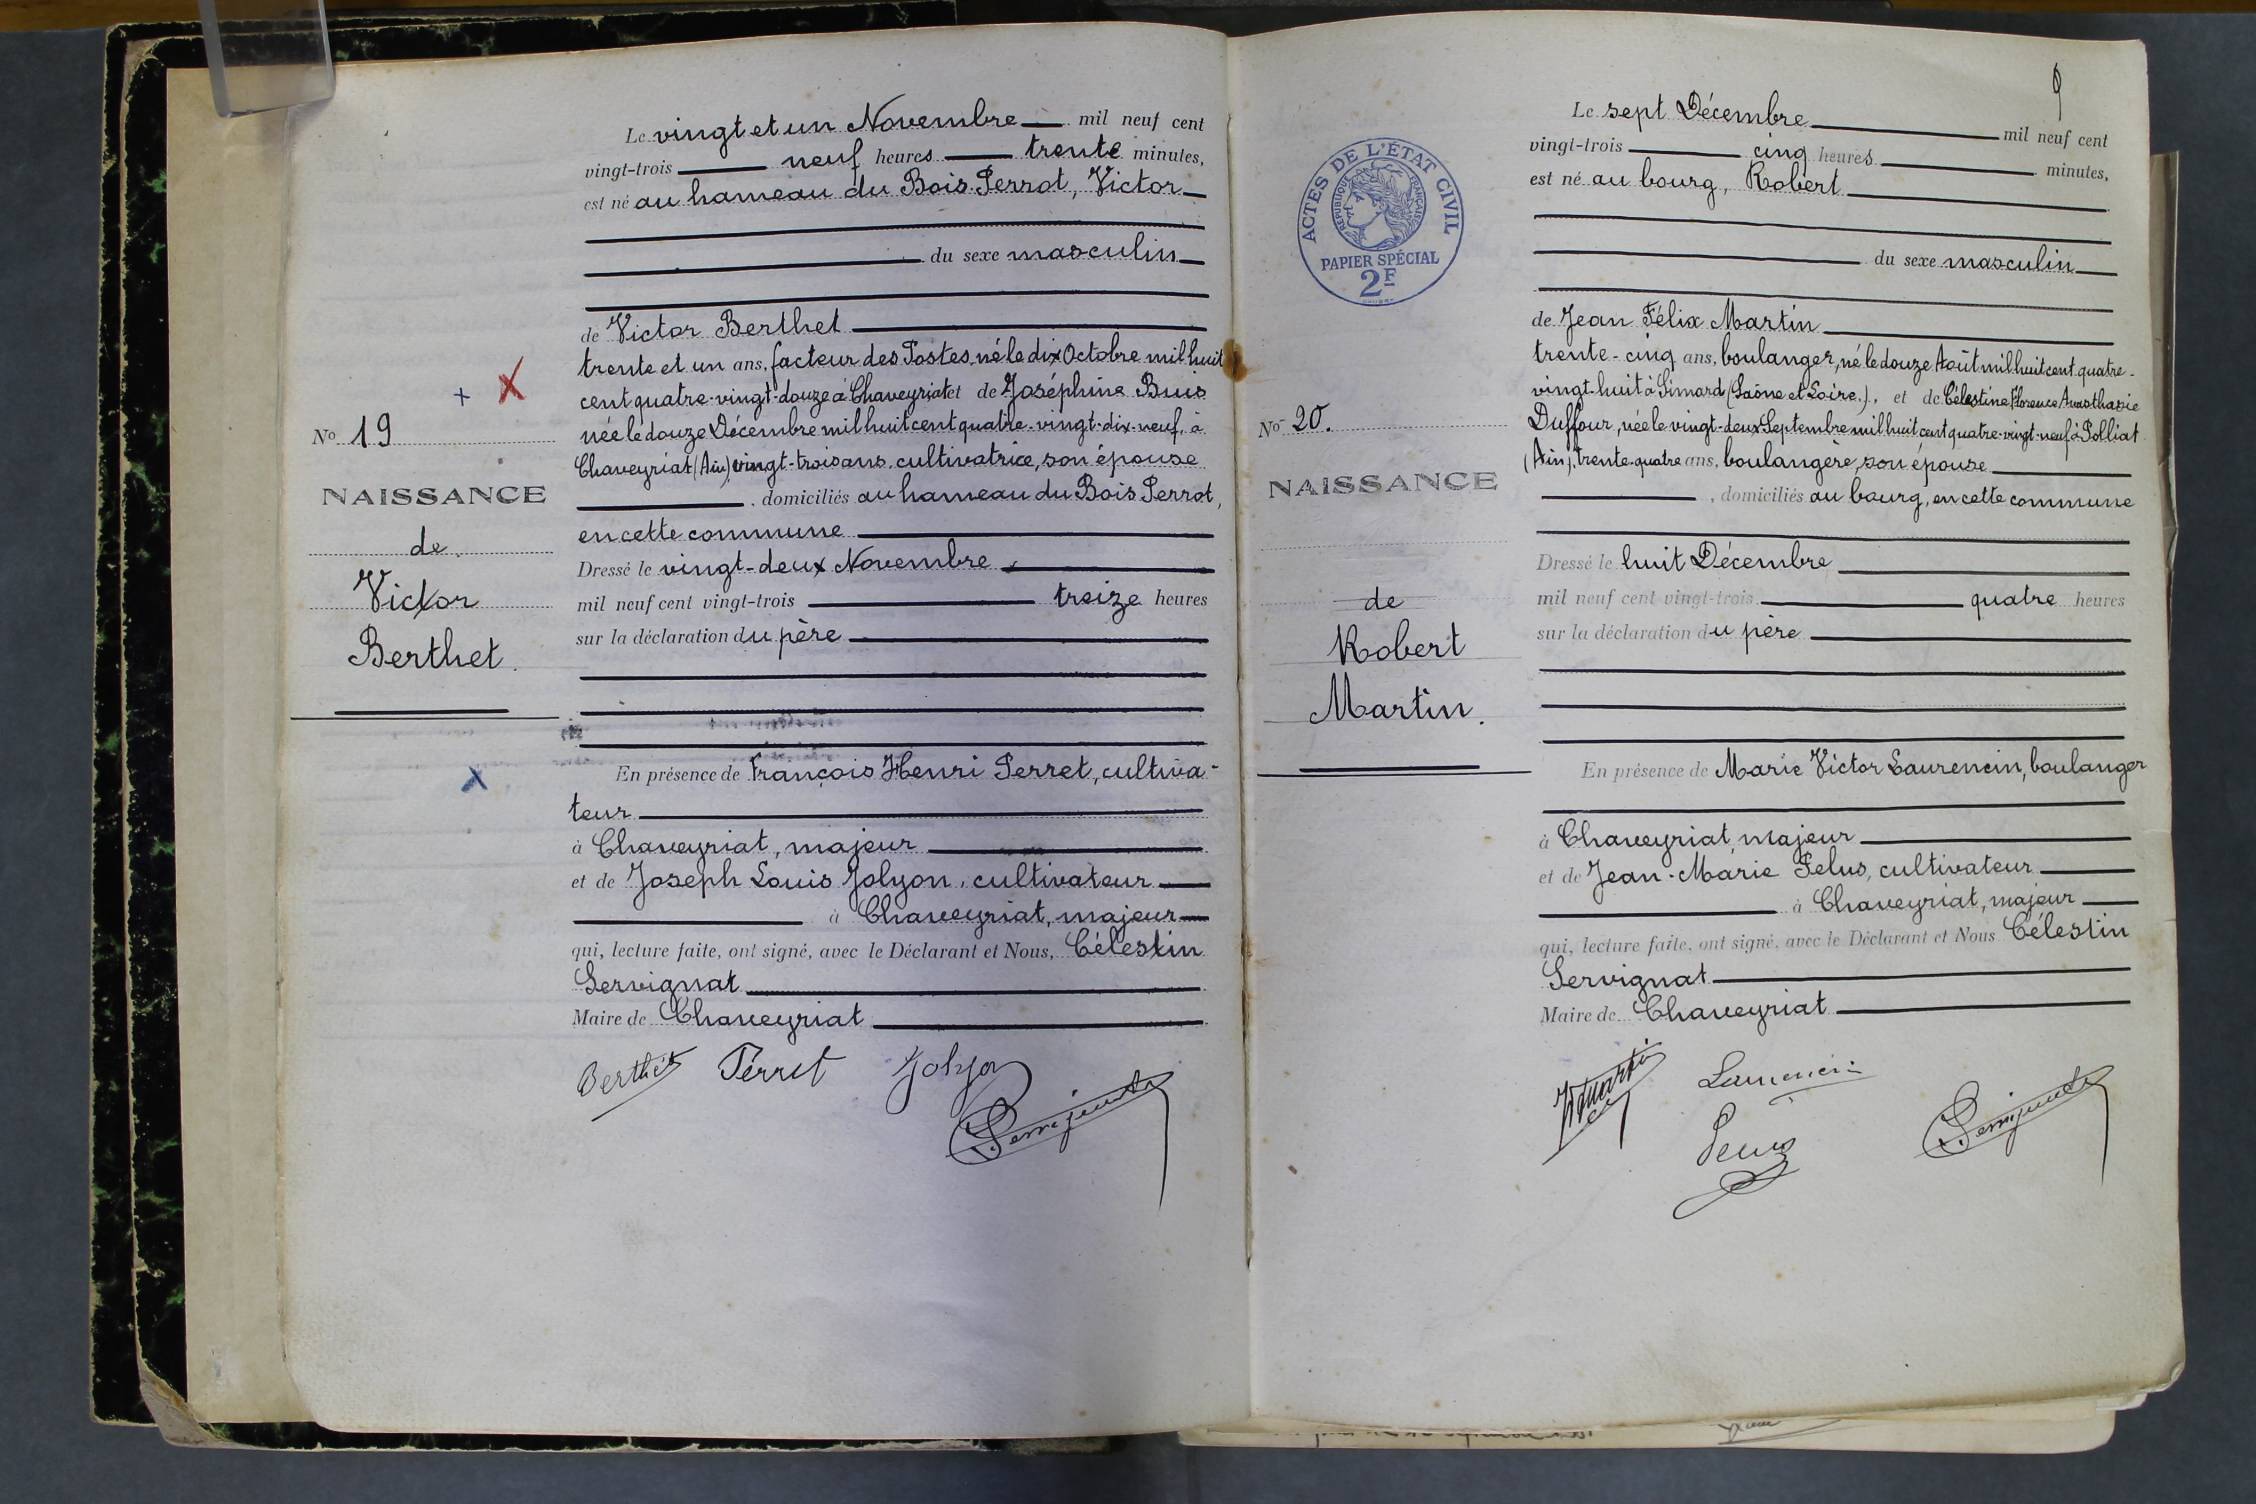 Le vingt et un Novembre mil neuf cent
vingt-trois neuf heures trente minutes,
est né au hameau du Bois Perrot, Victor
du sexe masculin
de Victor Berthet
trente et un ans, facteur des Postes, né le dix Octobre mil huit
cent quatre-vingt-douze à Chaveyriat et de Joséphine Buis
née le douze Décembre mil huit cent quatre-vingt-dix-neuf, à
Chaveyriat (Ain), vingt-trois ans, cultivatrice, son épouse
, domiciliés au hameau du Bois Perrot,
en cette commune
Dressé le vingt-deux Novembre
mil neuf cent vingt-trois treize heures
sur la déclaration du père
En présence de François Henri Perret, cultiva-
teur
à Chaveyriat, majeur
et de Joseph Louis Jolyon, cultivateur
à Chaveyriat, majeur
qui, lecture faite, ont signé, avec le Déclarant et Nous, Célestin
Servignat
Maire de Chaveyriat
Berthet Perret Jolyon
No 19
NAISSANCE
de
Victor
Berthet.
9
Le sept Décembre mil neuf cent
vingt-trois cinq heures minutes,
est né au bourg, Robert
du sexe masculin
de Jean Félix Martin
trente-cinq ans, boulanger, né le douze Août mil huit cent quatre-
vingt-huit à Simard (Saône et Loire), et de Célestine Florence Anasthasie
Duffour, née le vingt-deux Septembre mil huit cent quatre-vingt-neuf à Polliat
(Ain), trente-quatre ans, boulangère, son épouse
, domiciliés au bourg, en cette commune
Dressé le huit Décembre
mil neuf cent vingt-trois quatre heures
sur la déclaration du père
En présence de Marie Victor Laurencin, boulanger
à Chaveyriat, majeur
et de Jean-Marie Pelus, cultivateur
à Chaveyriat, majeur
qui, lecture faite, ont signé, avec le Déclarant et Nous Célestin
Servignat
Maire de Chaveyriat
Martin Laurencin
ACTES DE L'ÉTAT CIVIL
RÉPUBLIQUE FRANÇAISE
PAPIER SPÉCIAL
2F
No 20.
NAISSANCE
de
Robert
Martin.